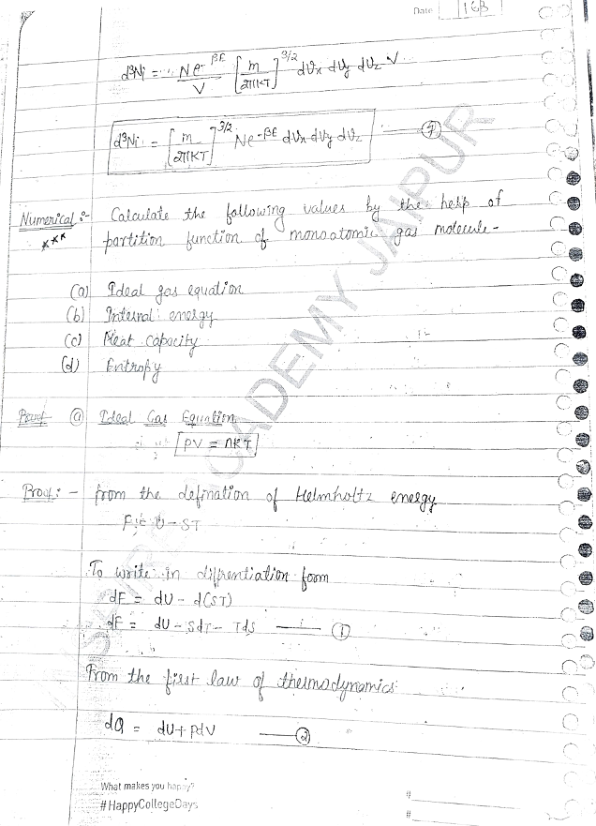 Date 163
d³Ni = Ne^-βE / V [m / 2πKT]^3/2 dVx dVy dVz V
d³Ni = [m / 2πKT]^3/2 Ne^-βE dVx dVy dVz — 7
Numerical :- Calculate the following values by the help of
*** partition function of monoatomic gas molecule -
(a) Ideal gas equation
(b) Internal energy
(c) Heat capacity
(d) Entropy
Proof @ Ideal Gas Equation
PV = nKT
Proof :- from the defination of Helmholtz energy
U - ST
To write in diffrentiation form
dF = dU - d(ST)
dF = dU - SdT - TdS — 1
From the first law of thermodynamics
dQ = dU + PdV — 2
ACADEMY JAIPUR
What makes you happy?
#HappyCollegeDays
#
#